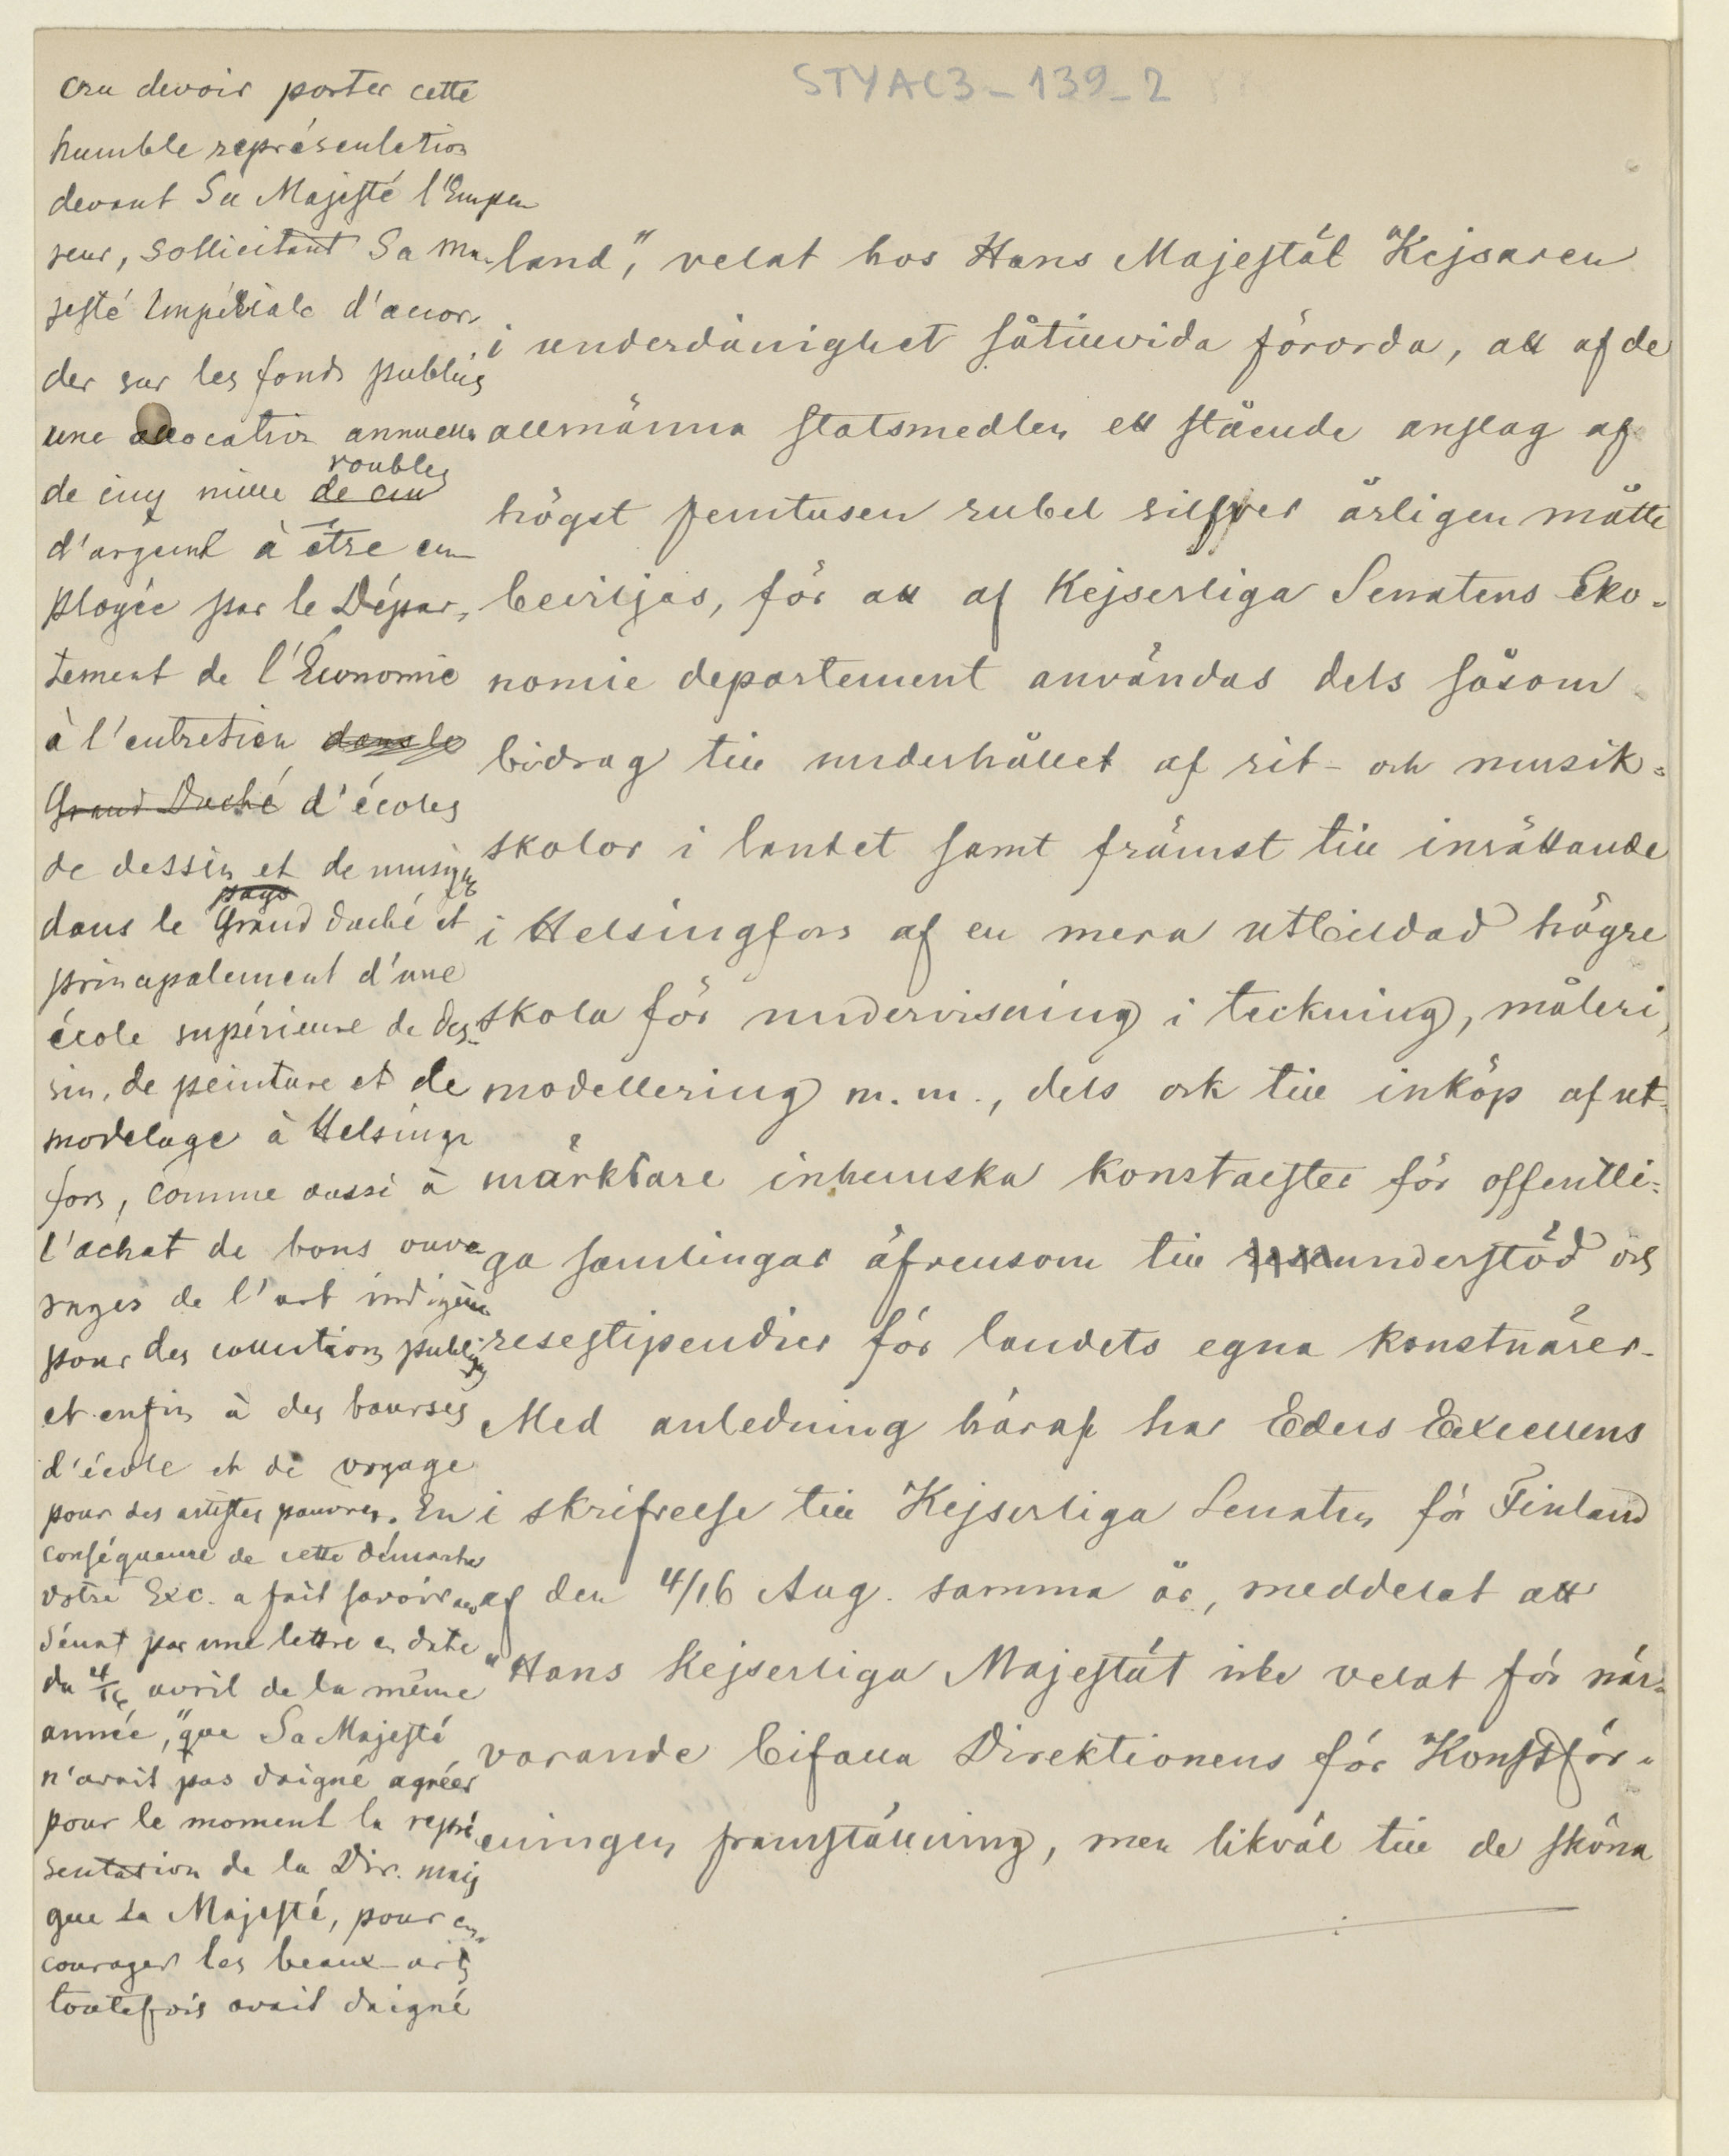 STYAC3-139-2
cru devoir porter cette
humble représentation
devant Sa Majesté l'Empe
reur, sollicitant Sa Ma-
jesté Impériale d'accor-
der sur les fonds publics
une allocation annuelle
roubles
de cinq mille de cin
d'argent à être em-
ployée par le Dépar-
tement de l'Économie
à l'entretien dans le
Grand Duché d'écoles
de dessin et de musique
pays
dans le Grand duché et
principalement d'une
école supérieure de des-
sin, de peinture et de
modelage à Helsing-
fors, comme aussi à
l'achat de bons ouv-
rages de l'art indigène
pour des collections publiques
et enfin à des bourses
d'école et de voyage
pour des artistes pauvres. En
conséquence de cette démarche
votre Exc. a fait savoir au
Sénat par une lettre en date
du 4/16 avril de la même
année, "que Sa Majesté
n'avait pas daigné agréer
pour le moment la repré
sentation de la Dir. mais
que Sa Majesté, pour en-
courager les beaux-arts
toutefois avait daigné
land", velat hos Hans Majestät Kejsaren
i underdånighet såtillvida förorda, att af de
allmänna statsmedlen ett stående anslag af
högst femtusen rubel silfver årligen måtte
beviljas, för att af Kejserliga Senatens Eko-
nomie departement användas dels såsom
bidrag till underhållet af rit- och musik-
skolor i landet samt främst till inrättande
i Helsingfors af en mera utbildad högre
skola för undervisning i teckning, måleri,
modellering m.m., dels ock till inköp af ut-
märktare inhemska konstalster för offentli-
ga samlingar äfvensom till rese understöd och
resestipendier för landets egna konstnärer.
Med anledning häraf har Eders Excellens
i skrifvelse till Kejserliga Senaten för Finland
af den 4/16 Aug. samma år, meddelat att
"Hans Kejserliga Majestät icke velat för när-
varande bifalla Direktionens för Konstför-
eningen framställning, men likväl till de sköna